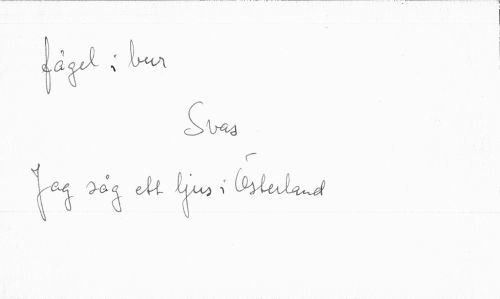 fågel i bur
Svas
Jag såg ett ljus i Österland